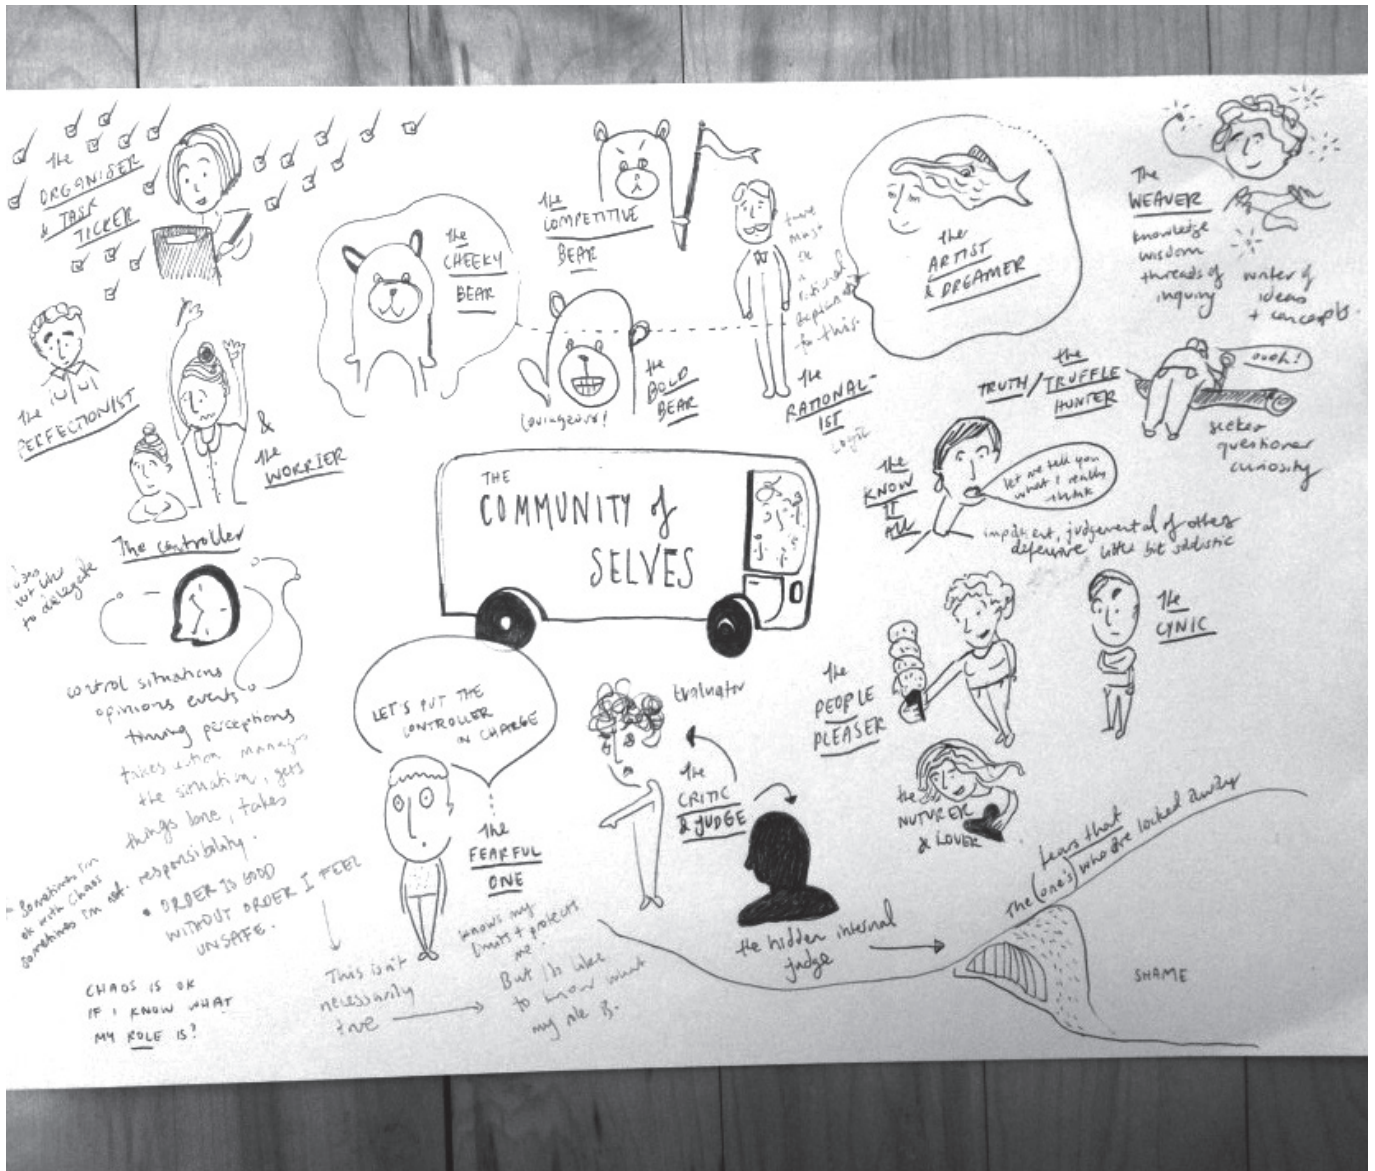 the
ORGANISER
& TASK
TICKER
the
PERFECTIONIST
&
the
WORRIER
the
CHEEKY
BEAR
the
COMPETITIVE
BEAR
the
BOLD
BEAR
Courageous!
there
must
be
a
rational
explanation
for this.
the
RATIONAL-
IST
Logic
the
ARTIST
& DREAMER
The
WEAVER
knowledge
wisdom
threads of
inquiry
writer of
ideas
+ concepts.
the
TRUTH / TRUFFLE
HUNTER
oooh!
seeker
questioner
curiosity
the
KNOW
IT
ALL
let me tell you
what I really
think
impatient, judgemental of others
defensive little bit sadistic
THE
COMMUNITY of
SELVES
The controller
does
not like
to delegate
control situations
opinions events
timing perceptions
takes action manages
the situation, gets
things done, takes
responsibility.
• ORDER IS GOOD
WITHOUT ORDER I FEEL
UNSAFE.
- Sometimes I'm
ok with chaos
sometimes I'm not.
CHAOS IS OK
IF I KNOW WHAT
MY ROLE IS?
This isn't
necessarily
true
LET'S PUT THE
CONTROLLER
IN CHARGE
the
FEARFUL
ONE
knows my
limits + protects
me.
But I'd like
to know what
my role is.
Evaluator
the
CRITIC
& JUDGE
the hidden internal
judge
the
PEOPLE
PLEASER
the
CYNIC
the
NUTURER
& LOVER
fears that
The (one's) who are locked away
SHAME